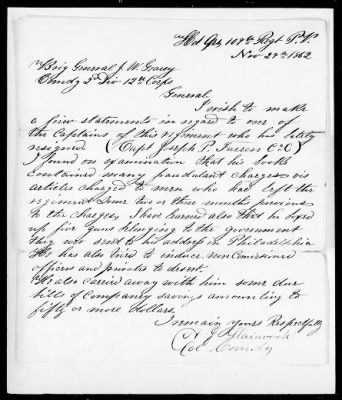 Hd Qrs 109th Regt P. V.
Nov 29th 1862
Brig General J. W. Geary
Comdg 2d Div 12th Corps
General,
I wish to make
a few statements in regard to one of
the Captains of this regiment who has lately
resigned (Capt Joseph P. C)
I found on examination that his books
contained many fraudulant charges vis
articles charged to men who had left the
regiment some two or three months previous
to the charges, I have learned also that he boxed
up five guns belonging to the government
they was sent to his address in Philadelphia
He has also tried to induce non comissioned
officers and privates to desert.
He also carried away with him some due
bills of Company savings amounting to
fifty or more dollars.
I remain yours Respectfully
Stainrook
Col Comdg